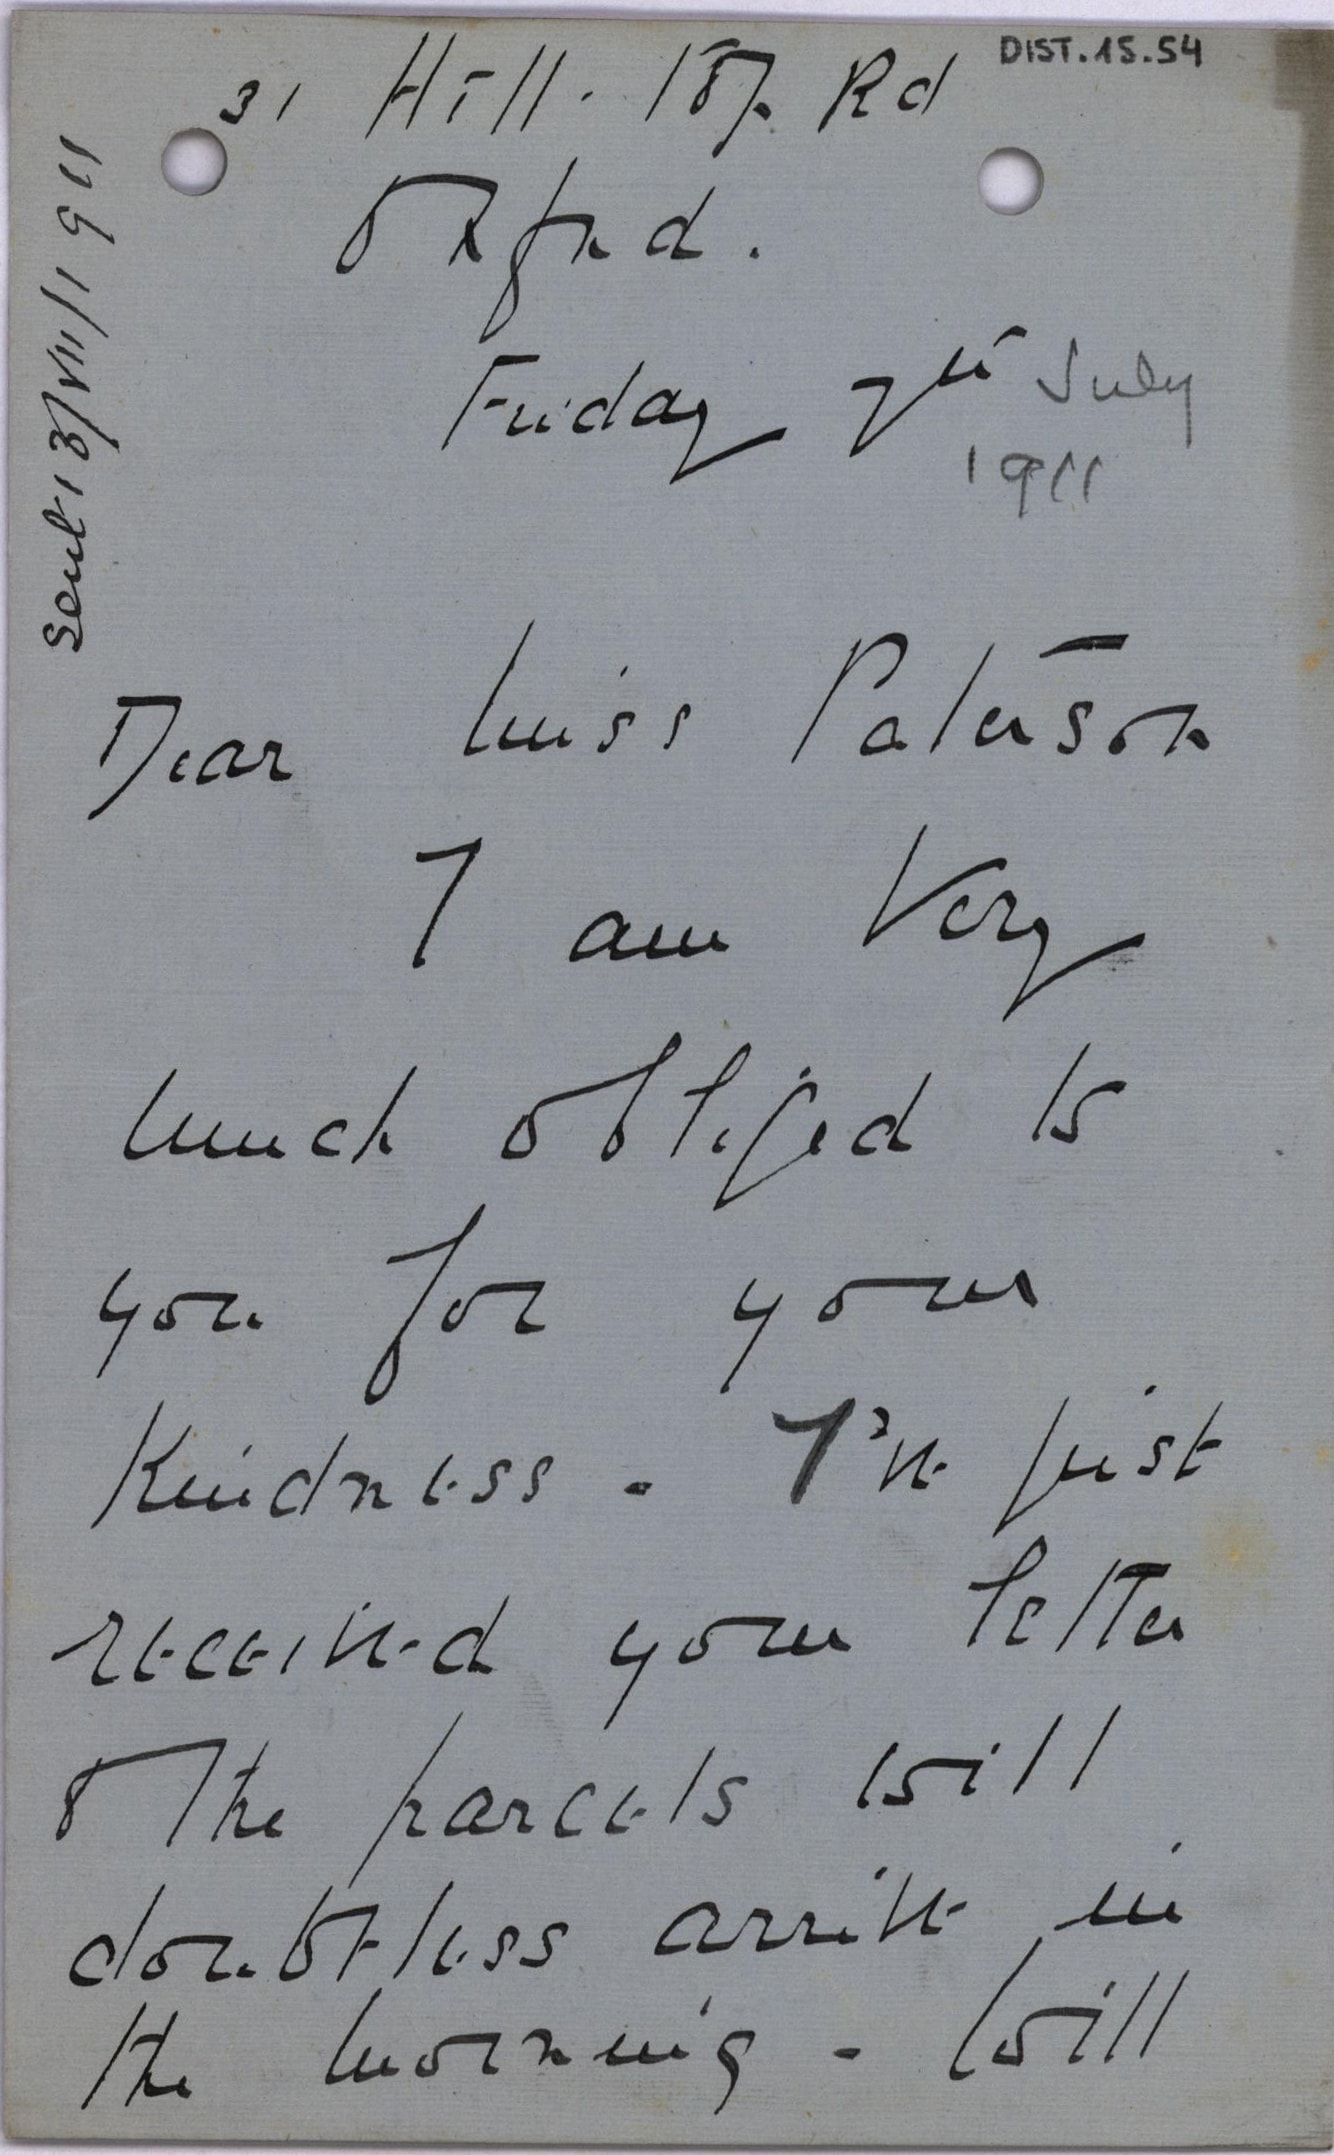 DIST.15.54
31 Hill Top Rd
Oxford.
Friday 7th July
1911
Sent 13/VII/1911
Dear Miss Paterson
I am very
much obliged to
you for your
kindness. I've just
received your letter
& the parcels will
doubtless arrive in
the morning. Will